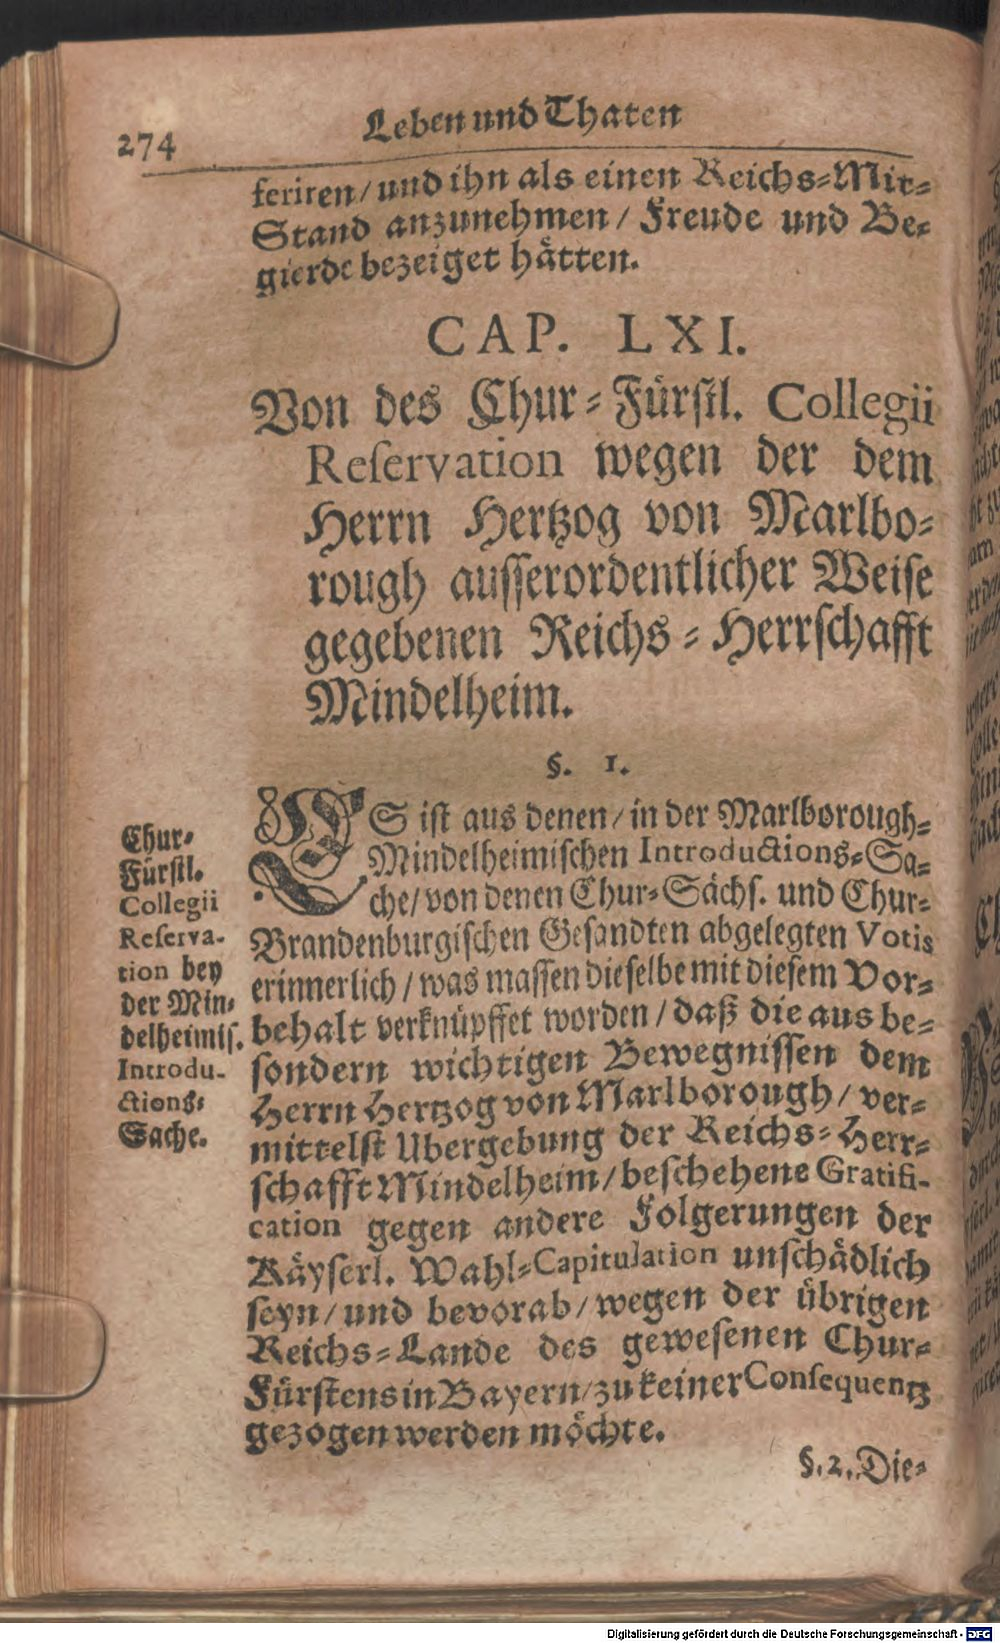 274
Leben und Thaten
feriren / und ihn als einen Reichs-Mit-
Stand anzunehmen / Freude und Be-
gierde bezeiget hätten.
CAP. LXI.
Von des Chur-Fürstl. Collegii
Reservation wegen der dem
Herrn Hertzog von Marlbo-
rough ausserordentlicher Weise
gegebenen Reichs-Herrschafft
Mindelheim.
§. 1.
Chur-
Fürstl.
Collegii
Reserva-
tion bey
der Min-
delheimis.
Introdu-
ctions-
Sache.
ES ist aus denen / in der Marlborough-
Mindelheimischen Introductions-Sa-
che / von denen Chur-Sächs. und Chur-
Brandenburgischen Gesandten abgelegten Votis
erinnerlich / was massen dieselbe mit diesem Vor-
behalt verknüpffet worden / daß die aus be-
sondern wichtigen Bewegnissen dem
Herrn Hertzog von Marlborough / ver-
mittelst Ubergebung der Reichs-Herr-
schafft Mindelheim / beschehene Gratifi-
cation gegen andere Folgerungen der
Käyserl. Wahl-Capitulation unschädlich
seyn / und bevorab / wegen der übrigen
Reichs-Lande des gewesenen Chur-
Fürstens in Bayern / zu keiner Consequentz
gezogen werden möchte.
§. 2. Die-
Digitalisierung gefördert durch die Deutsche Forschungsgemeinschaft - DFG